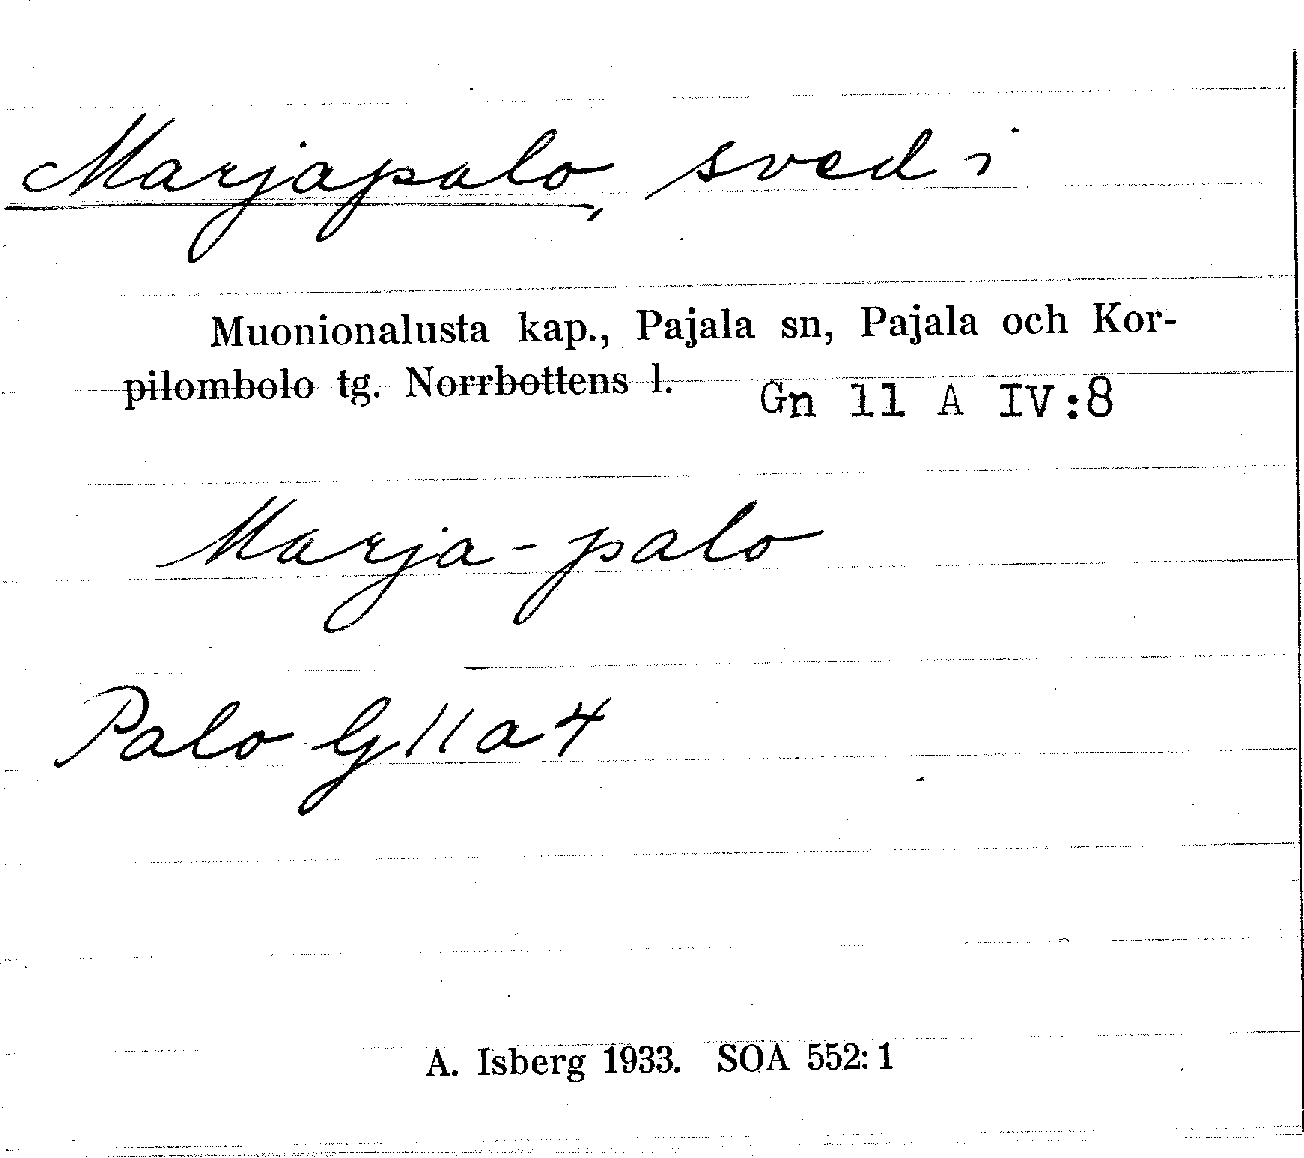 Marjapalo, sved i
Muonionalusta kap., Pajala sn, Pajala och Kor-
pilombolo tg. Norrbottens l. Gn 11 A IV:8
Marja-palo
Palo G 11 a 4
A. Isberg 1933. SOA 552:1